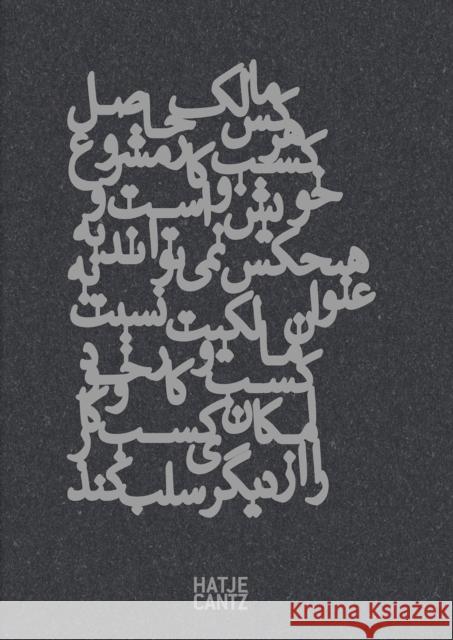 هرکس مالک حاصل
کسب و کار مشروع
خویش است و
هیچکس نمی تواند به
عنوان مالکیت نسبت به
کسب و کار خود
امکان کسب و کار
را از دیگری سلب کند
HATJE
CANTZ